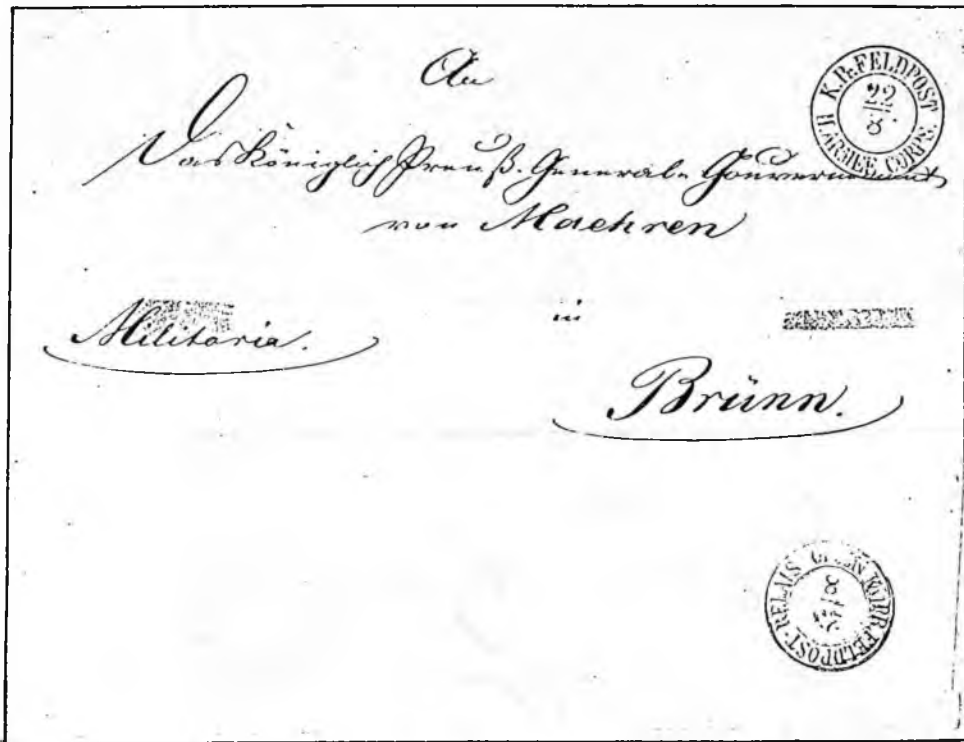 An
Das Königlich Preuß. General-Gouvernement
von Maehren
Militaria.
in
Brünn.
K. PR. FELDPOST
II. ARMEE CORPS.
22/8.
FELDPOST-RELAIS
K.PR.